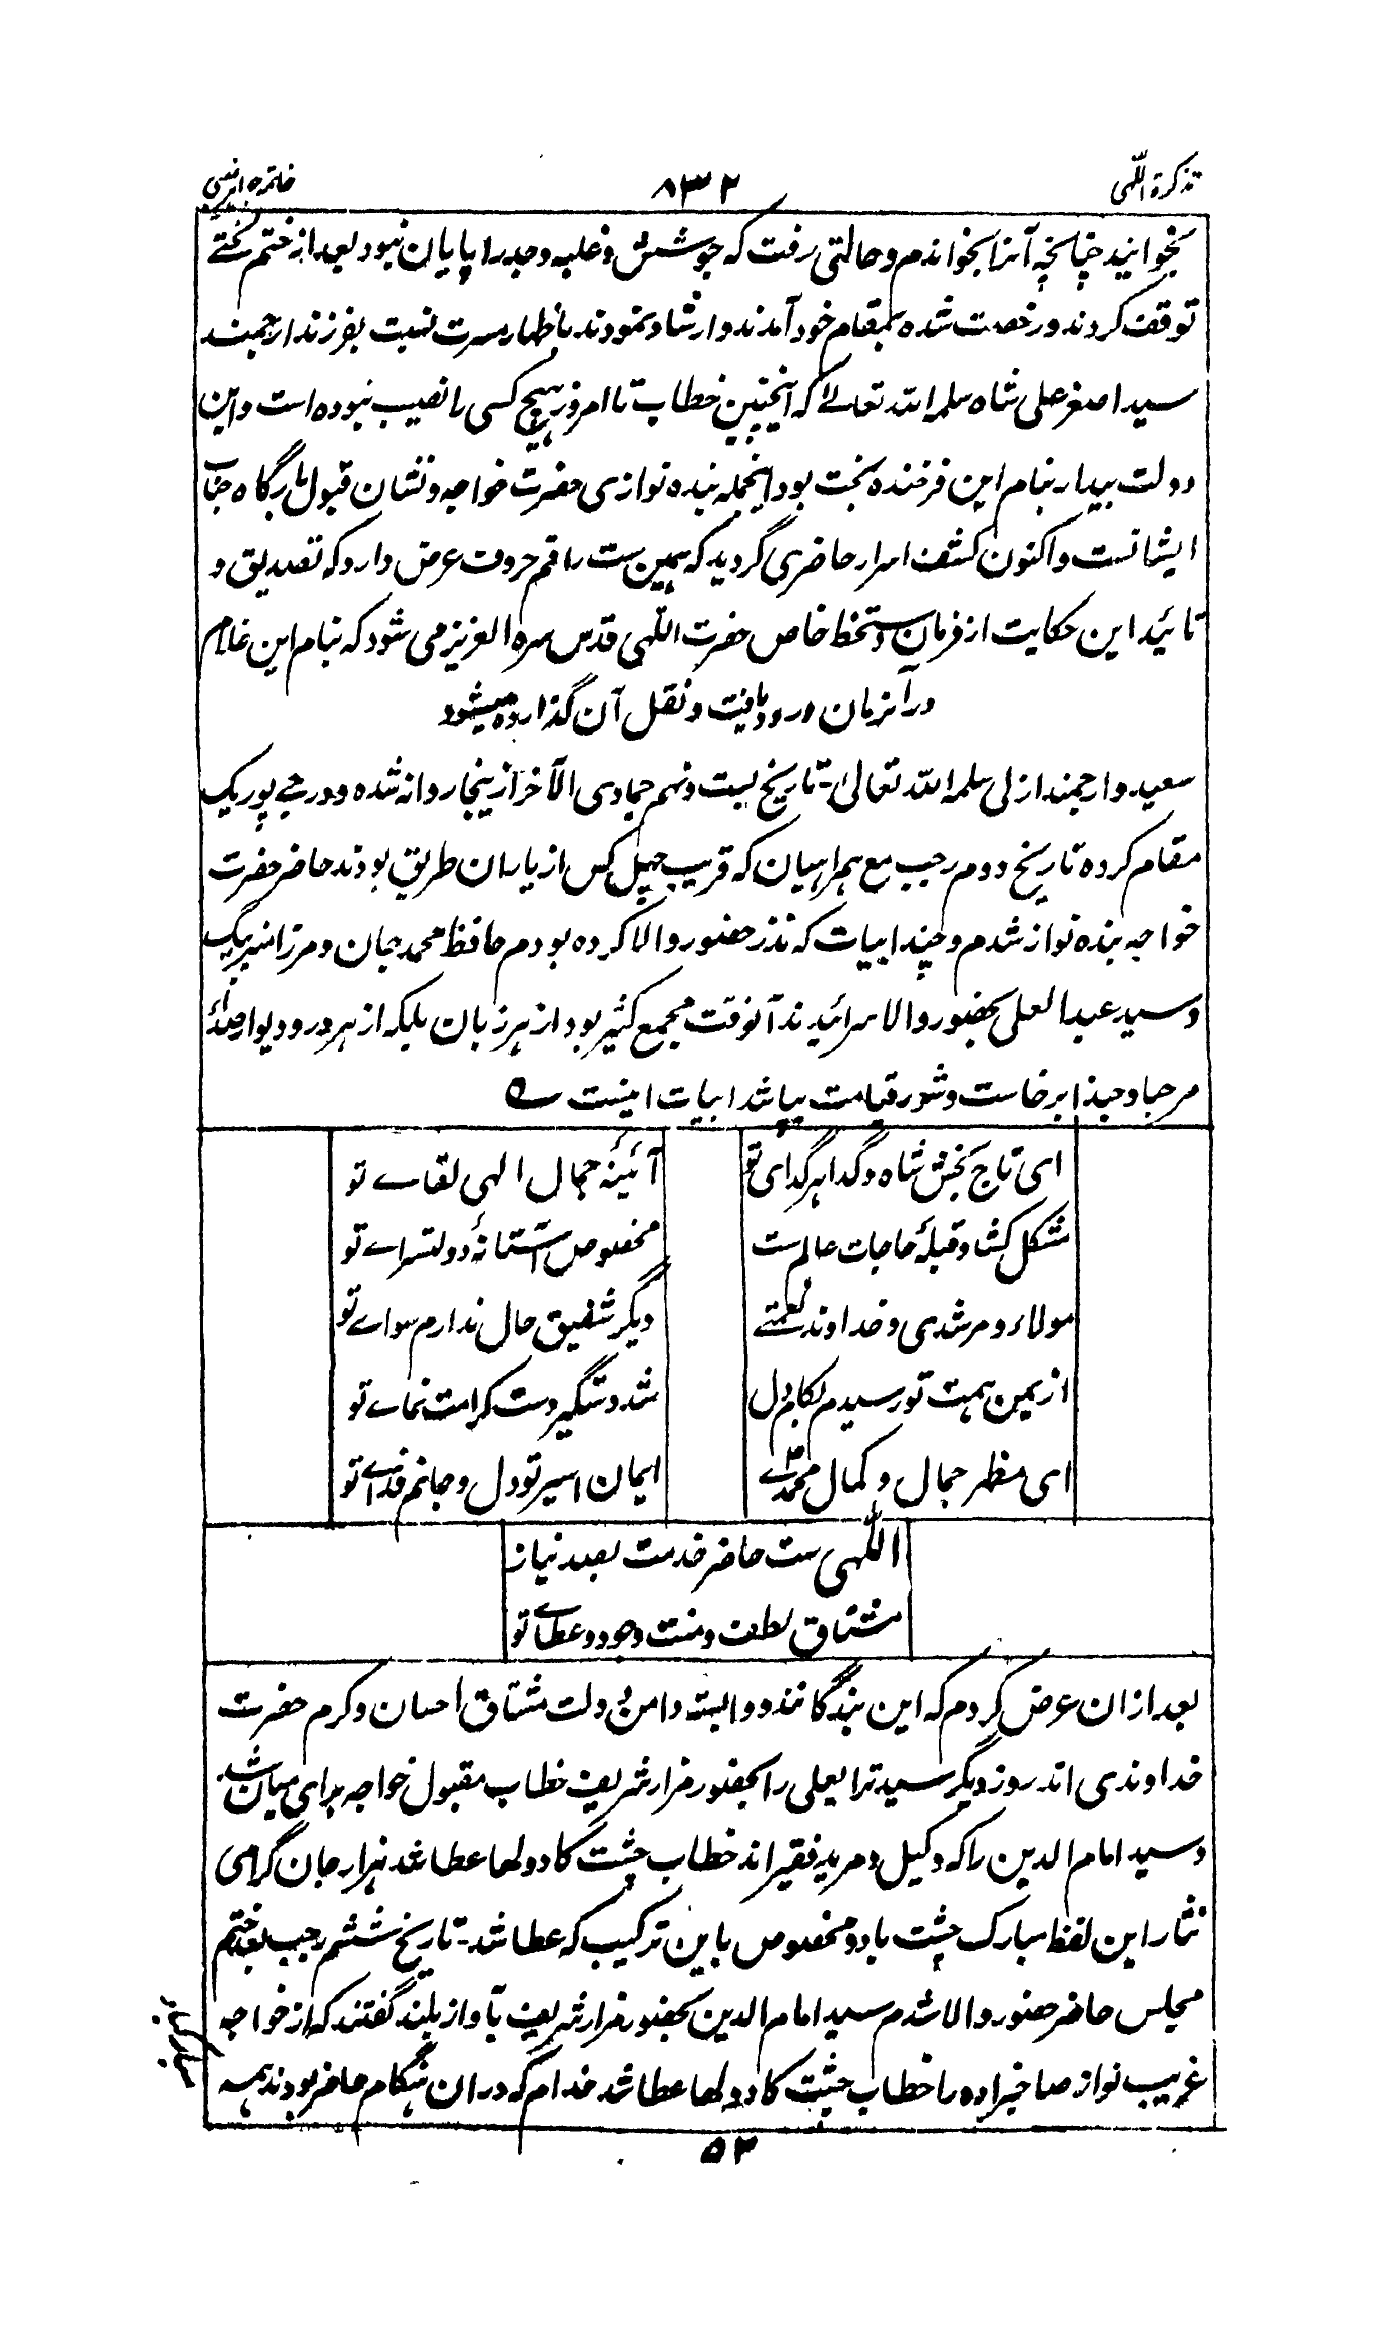 تذکرة اللهی
۸۳۲
خاتمه
بخوانید چنانچه آنرا بخواندم و حالتی رفت که جوشش و غلبه وجد را پایان نبود بعد از ختم لختے
توقف کردند و رخصت شده بمقام خود آمدند و ارشاد نمودند باظهار مسرت نسبت بفرزند ارجمند
سید اصغر علی شاه سلمه الله تعالے که اینچنین خطاب تا امروز هیچ کسی را نصیب نبوده است و این
دولت بیدار بنام این فرخنده بخت بود اینجمله بنده نوازی حضرت خواجه و نشان قبول بارگاه جناب
ایشانست و اکنون کشف اسرار حاضری گردید که همین ست راقم حروف عرض دارد که تصدیق و
تائید این حکایت از فرمان دستخط خاص حضرت اللهی قدس سره العزیز می شود که بنام این غلام
در آنزمان ورود یافت و نقل آن گذارده میشود
سعید و ارجمند ازلی سلمه الله تعالیٰ۔ تاریخ بست و نهم جمادی الآخر از ینجا روانه شده و در جے پور یک
مقام کرده تاریخ دوم رجب مع همراهیان که قریب چهل کس از یاران طریق بودند حاضر حضرت
خواجه بنده نواز شدم و چند ابیات که نذر حضور والا کرده بودم حافظ محمد جان و مرزا ببر بیگ
و سید عبد العلی بحضور والا سرائیدند آنوقت مجمع کثیر بود از هر زبان بلکه از هر در و دیوار صدائے
مرحبا و حبذا برخاست و شور قیامت بپا شد ابیات اینست ے
ای تاج بخش شاه و گدا هر گدای تو
آئینۂ جمال الهی لقاے تو
مشکل کشا و قبلۂ حاجات عالم ست
مخصوص آستانۂ دولتسراے تو
مولاء و مرشدی و خداوند نعمتے
دیگر شفیق حال ندارم سواے تو
از یمن همت تو رسیدم بکام دل
شد دستگیر دست کرامت نماے تو
ای مظهر جمال و کمال محمدے
ایمان اسیر تو دل و جانم فداے تو
اللهی ست حاضر خدمت بصد نیاز
مشتاق لطف و منت و جود و عطاے تو
بعد ازان عرض کردم که این بندگانند و وابسته دامن دولت مشتاق احسان و کرم حضرت
خداوندی اند روز دیگر سید تراب علی را بحضور مزار شریف خطاب مقبول خواجه برای میان شد
و سید امام الدین را که وکیل و مرید فقیر اند خطاب چشت کا دولها عطا شد هزار جان گرامی
نثار این لفظ مبارک چشت باد و مخصوص باین ترکیب که عطا شد۔ تاریخ ششم رجب بعد ختم
مجلس حاضر حضور والا شدم سید امام الدین بحضور مزار شریف بآواز بلند گفتند که از خواجه
غریب نواز صاحبزاده را خطاب چشت کا دولها عطا شد خدام که دران هنگام حاضر بودند همه
۵۳